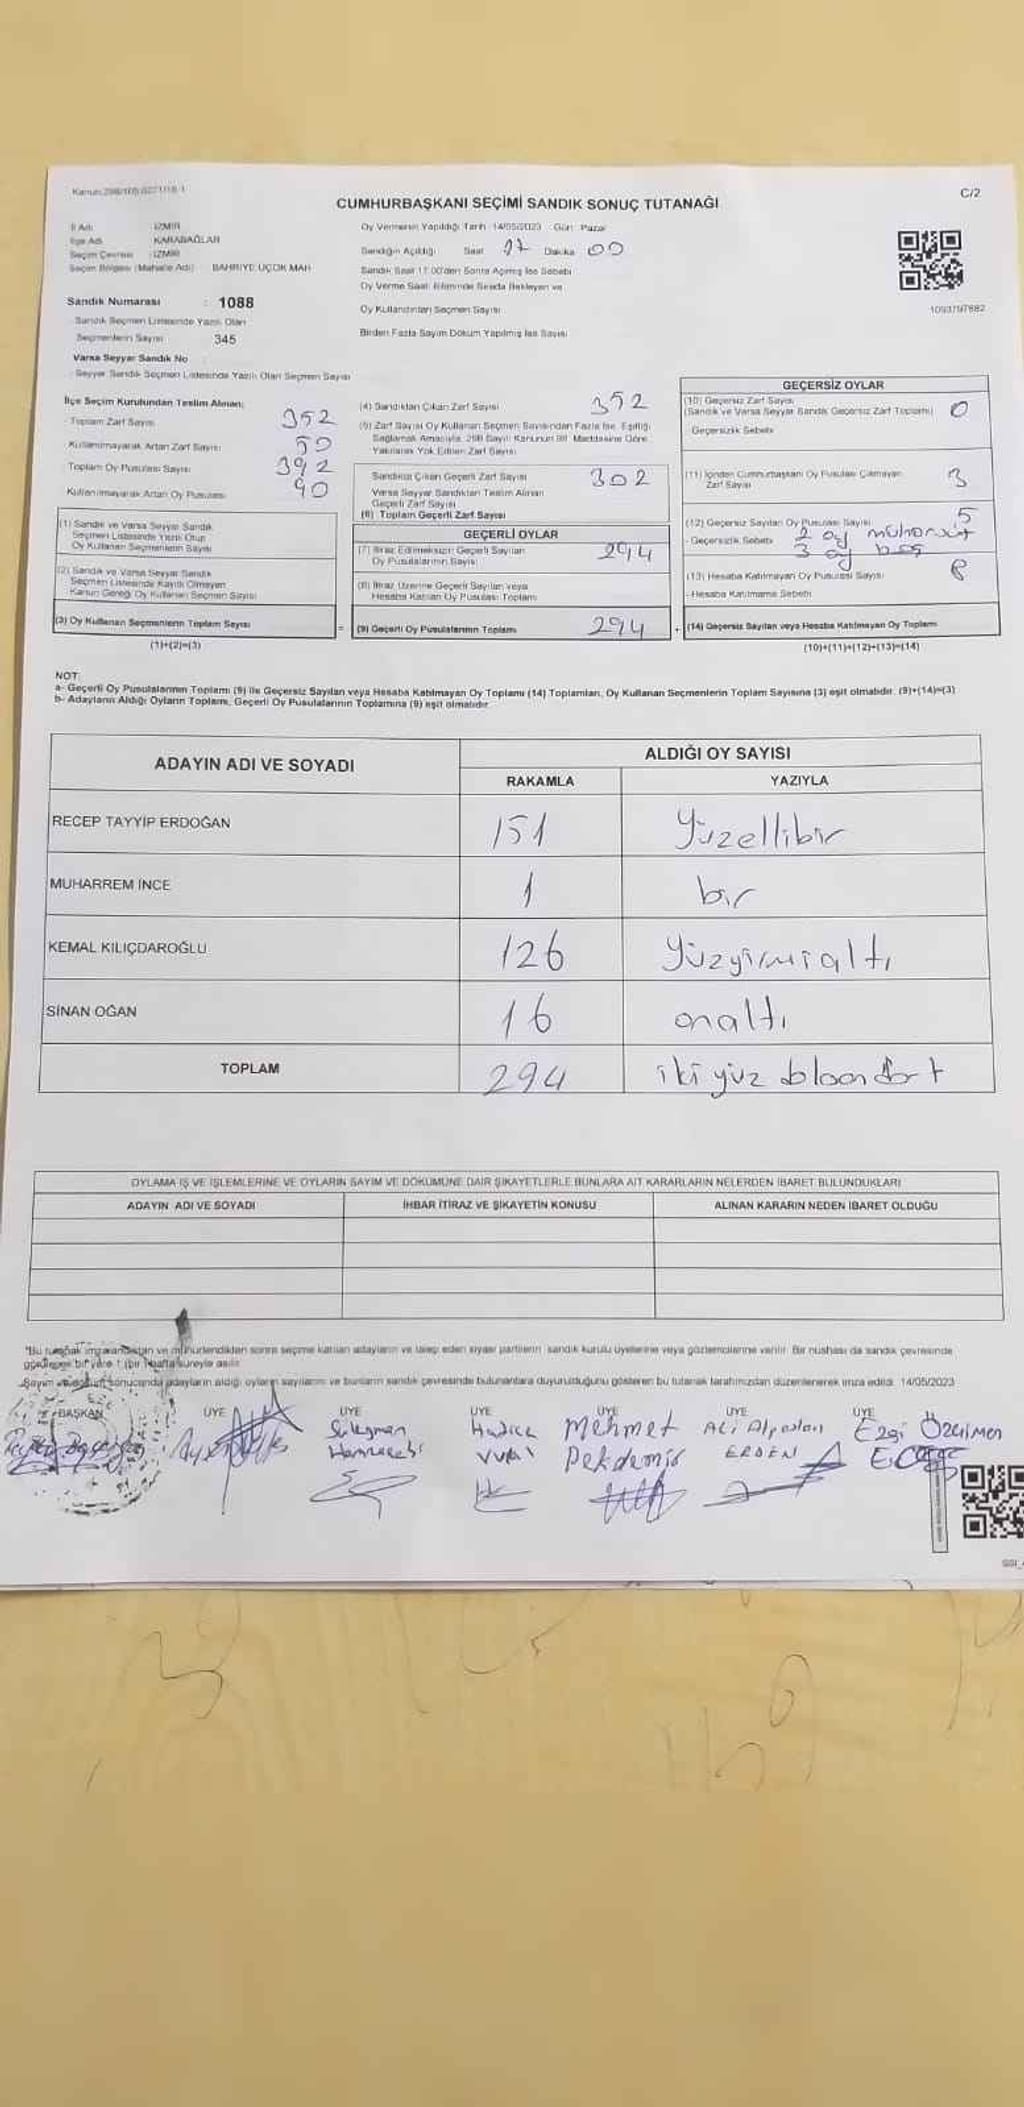 C/2
CUMHURBAŞKANI SEÇİMİ SANDIK SONUÇ TUTANAĞI
İl Adı : İZMİR
İlçe Adı : KARABAĞLAR
Seçim Çevresi : İZMİR
Seçim Bölgesi (Mahalle Adı) : BAHRİYE ÜÇOK MAH
Sandık Numarası : 1088
Sandık Seçmen Listesinde Yazılı Olan
Seçmenlerin Sayısı 345
Varsa Seyyar Sandık No
Seyyar Sandık Seçmen Listesinde Yazılı Olan Seçmen Sayısı
Oy Vermenin Yapıldığı Tarih 14/05/2023 Gün Pazar
Sandığın Açıldığı Saat 17 Dakika 00
Sandık Saat 17:00'den Sonra Açılmış İse Sebebi
Oy Verme Saati Bitiminde Sırada Bekleyen ve
Oy Kullandırılan Seçmen Sayısı
Birden Fazla Sayım Döküm Yapılmış İse Sayısı
1093797882
İlçe Seçim Kurulundan Teslim Alınan;
Toplam Zarf Sayısı 352
Kullanılmayarak Artan Zarf Sayısı 50
Toplam Oy Pusulası Sayısı 392
Kullanılmayarak Artan Oy Pusulası 90
(1) Sandık ve Varsa Seyyar Sandık
Seçmen Listesinde Yazılı Olup
Oy Kullanan Seçmenlerin Sayısı
(2) Sandık ve Varsa Seyyar Sandık
Seçmen Listesinde Kayıtlı Olmayan
Kanun Gereği Oy Kullanan Seçmen Sayısı
(3) Oy Kullanan Seçmenlerin Toplam Sayısı
(1)+(2)=(3)
(4) Sandıktan Çıkan Zarf Sayısı 352
(5) Zarf Sayısı Oy Kullanan Seçmen Sayısından Fazla İse, Eşitliği
Sağlamak Amacıyla, 298 Sayılı Kanunun 98. Maddesine Göre
Yakılarak Yok Edilen Zarf Sayısı
Sandıktan Çıkan Geçerli Zarf Sayısı 302
Varsa Seyyar Sandıktan Teslim Alınan
Geçerli Zarf Sayısı
(6) Toplam Geçerli Zarf Sayısı
GEÇERLİ OYLAR
(7) İtiraz Edilmeksizin Geçerli Sayılan
Oy Pusulalarının Sayısı 294
(8) İtiraz Üzerine Geçerli Sayılan veya
Hesaba Katılan Oy Pusulası Toplamı
= (9) Geçerli Oy Pusulalarının Toplamı 294
GEÇERSİZ OYLAR
(10) Geçersiz Zarf Sayısı
(Sandık ve Varsa Seyyar Sandık Geçersiz Zarf Toplamı) 0
Geçersizlik Sebebi
(11) İçinden Cumhurbaşkanı Oy Pusulası Çıkmayan
Zarf Sayısı 3
(12) Geçersiz Sayılan Oy Pusulası Sayısı 5
- Geçersizlik Sebebi 2 oy mühürsüz
3 oy boş
(13) Hesaba Katılmayan Oy Pusulası Sayısı 8
- Hesaba Katılmama Sebebi
+ (14) Geçersiz Sayılan veya Hesaba Katılmayan Oy Toplamı
(10)+(11)+(12)+(13)=(14)
NOT:
a- Geçerli Oy Pusulalarının Toplamı (9) ile Geçersiz Sayılan veya Hesaba Katılmayan Oy Toplamı (14) Toplamları, Oy Kullanan Seçmenlerin Toplam Sayısına (3) eşit olmalıdır. (9)+(14)=(3)
b- Adayların Aldığı Oyların Toplamı, Geçerli Oy Pusulalarının Toplamına (9) eşit olmalıdır.
ADAYIN ADI VE SOYADI
ALDIĞI OY SAYISI
RAKAMLA YAZIYLA
RECEP TAYYİP ERDOĞAN 151 Yüzellibir
MUHARREM İNCE 1 bir
KEMAL KILIÇDAROĞLU 126 Yüzyirmialtı
SİNAN OĞAN 16 onaltı
TOPLAM 294 ikiyüz
OYLAMA İŞ VE İŞLEMLERİNE VE OYLARIN SAYIM VE DÖKÜMÜNE DAİR ŞİKAYETLERLE BUNLARA AİT KARARLARIN NELERDEN İBARET BULUNDUKLARI
ADAYIN ADI VE SOYADI İHBAR İTİRAZ VE ŞİKAYETİN KONUSU ALINAN KARARIN NEDEN İBARET OLDUĞU
*Bu tutanak imzalandıktan ve mühürlendikten sonra seçime katılan adayların ve talep eden siyasi partilerin sandık kurulu üyelerine veya gözlemcilerine verilir. Bir nüshası da sandık çevresinde
görülecek bir yere 1 (bir) hafta süreyle asılır.
Sayım ve döküm sonucunda adayların aldığı oyların sayılarını ve bunların sandık çevresinde bulunanlara duyurulduğunu gösteren bu tutanak tarafımızdan düzenlenerek imza edildi. 14/05/2023
BAŞKAN ÜYE ÜYE ÜYE ÜYE ÜYE ÜYE
Süleyman Hatice Mehmet Ali Alpaslan Ezgi Özçilmen
Vural Pekdemir ERDEN